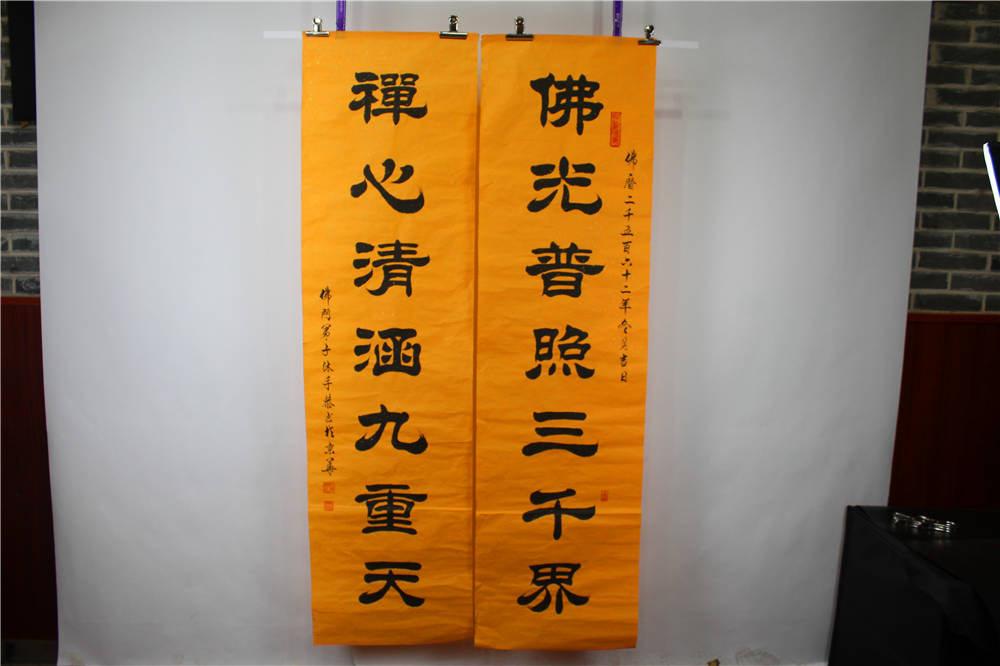 佛曆二千五百六十二年
佛光普照三千界
禪心清涵九重天
佛門弟子休手恭书於京華